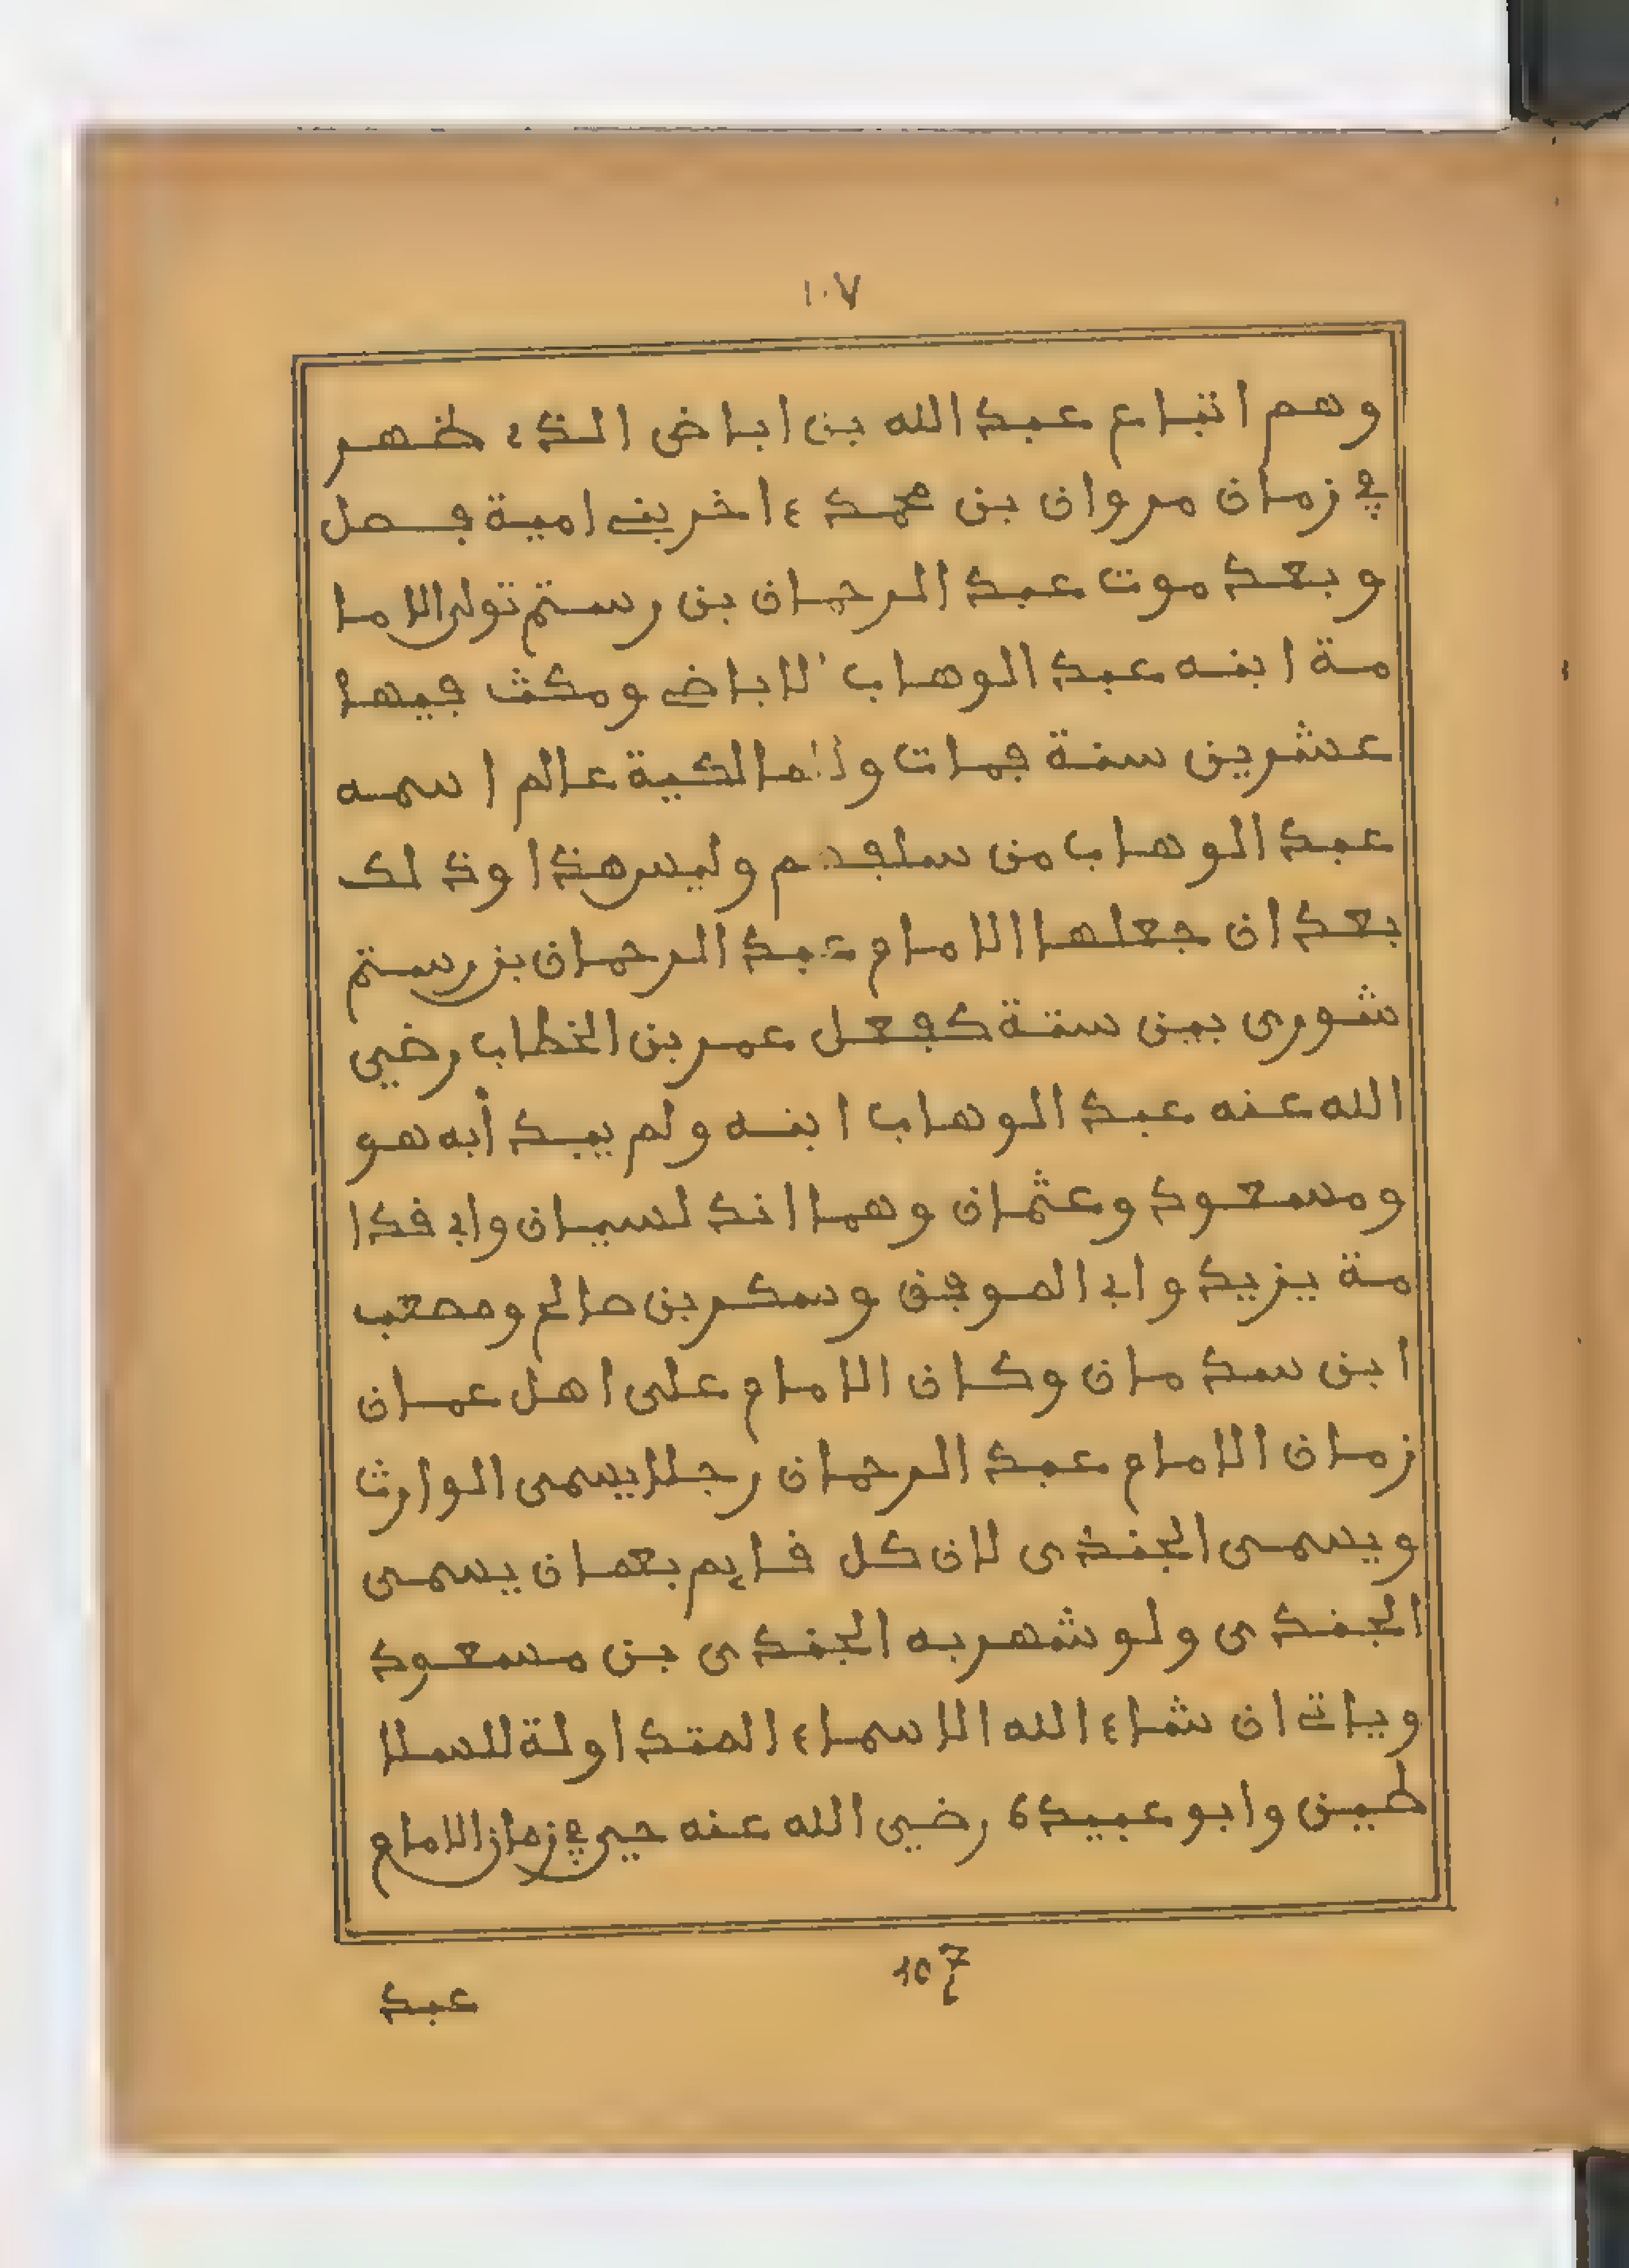 ١٠٧
وهم اتباع عبد الله بن اباض الذي ظهر
في زمان مروان بن محمد ءاخر بني امية فصل
وبعد موت عبد الرحمان بن رستم تولى الاما
مة ابنه عبد الوهاب الاباضي ومكث فيها
عشرين سنة فمات و للمالكية عالم اسمه
عبد الوهاب من سلفهم وليس هذا وذلك
بعد ان جعلها الامام عبد الرحمان بن رستم
شورى بين ستة كفعل عمر بن الخطاب رضي
الله عنه عبد الوهاب ابنه ولم يبدأ به هو
ومسعود وعثمان وهما اندلسيان وابي قدا
مة يزيد وابي الموفق وسكر بن صالح ومصعب
ابن سدمان وكان الامام على اهل عمان
زمان الامام عبد الرحمان رجلا يسمى الوارث
ويسمى الجلندى لان كل قايم بعمان يسمى
الجلندى ولو شهر به الجلندى بن مسعود
وياتي ان شاء الله الاسماء المتداولة للسلا
طين وابو عبيدة رضي الله عنه حي في زمان الامام
107
عبد